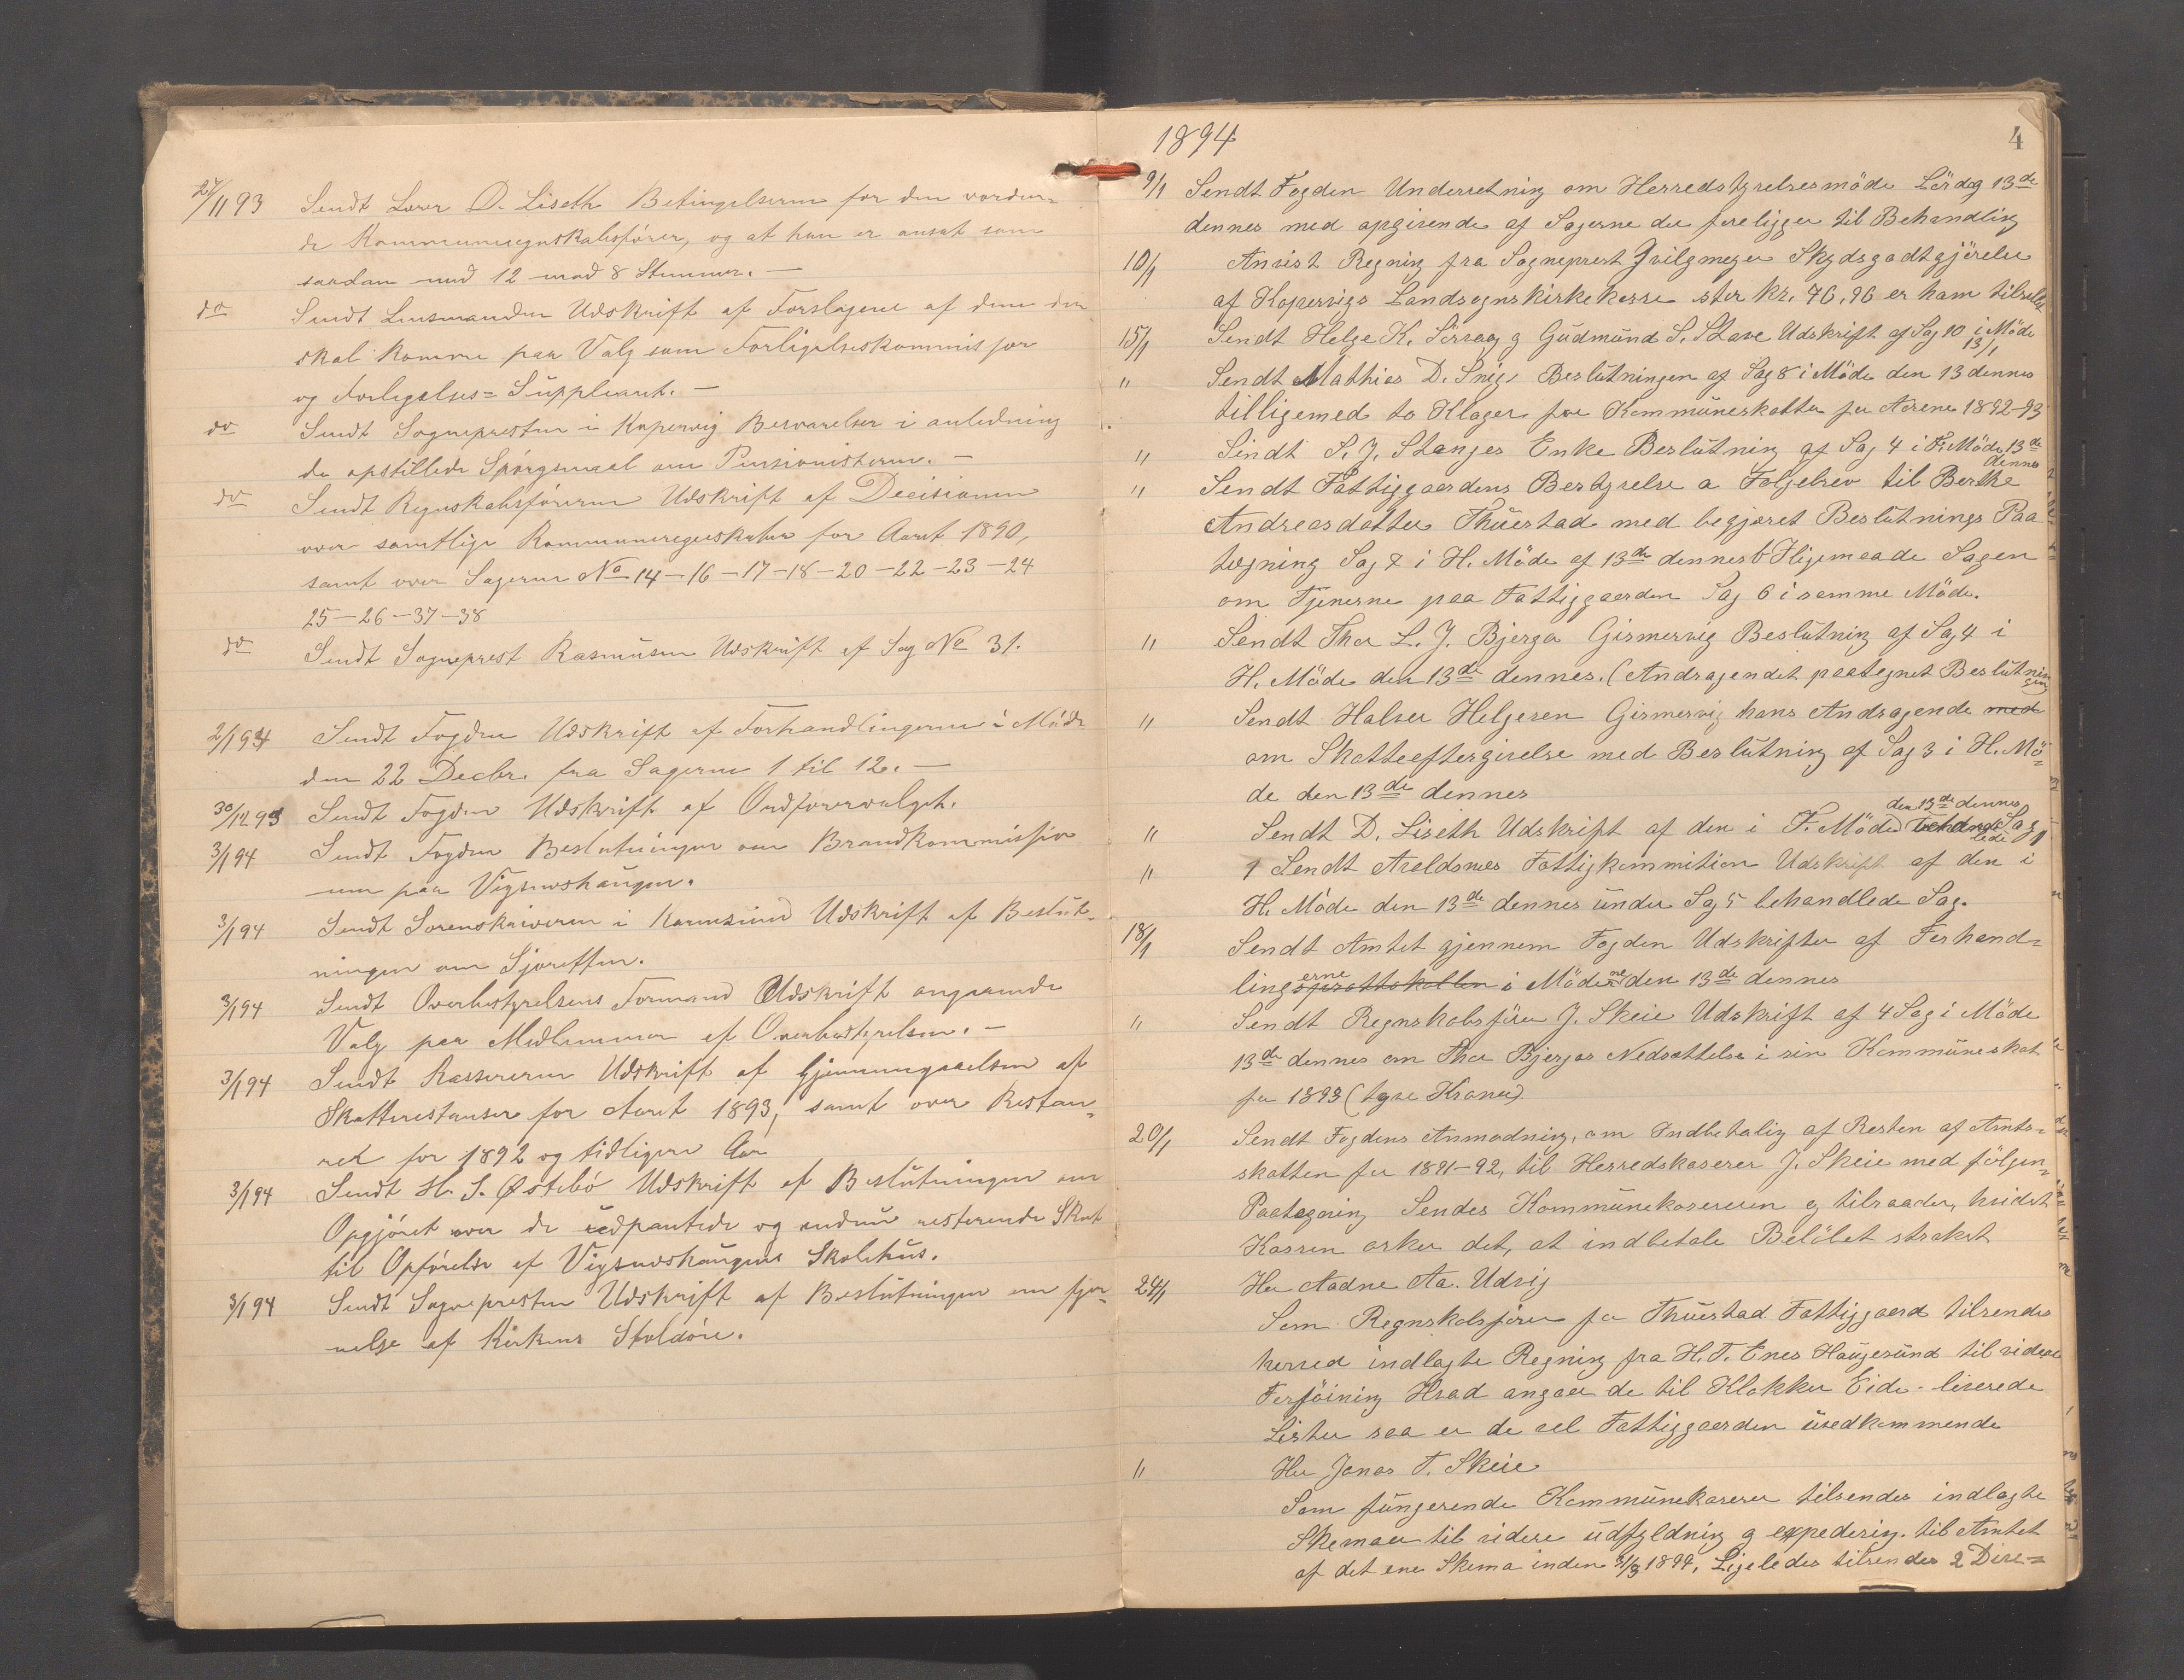 27/11 93 Sendt Lærer D. Liseth Betingelserne for den vorden-
de Kommuneregnskabsfører, og at han er ansat som
saadan med 12 mod 8 Stemmer. —
do Sendt Lensmanden Udskrift af Forslagene af dem der
skal komme paa Valg som Forligelseskommissær
og Forligelses= Suppleant. —
do Sendt Sognepresten i Kopervig Besvarelser i anledning
de opstillede Spørgsmaal om Pensionisterne. —
do Sendt Regnskabsføreren Udskrift af Decisionen
over samtlige Kommuneregnskaber for Aaret 1890,
samt over Sagerne No 14-16-17-18-20-22-23-24
25-26-37-38
do Sendt Sogneprest Rasmusen Udskrift af Sag No 31.
2/1 94 Sendt Fogden Udskrift af Forhandlingerne i Møde
den 22 Decbr. fra Sagerne 1 til 12. —
30/12 93 Sendt Fogden Udskrift af Ordførervalget.
3/1 94 Sendt Fogden Beslutningen om Brandkommissio
nen paa Vigsneshaugen.
3/1 94 Sendt Sorenskriveren i Karmsund Udskrift af Beslut-
ningen om Sjøretten.
3/1 94 Sendt Overbestyrelsens Formand Udskrift angaaende
Valg paa Medlemmer af Overbestyrelsen. —
3/1 94 Sendt Kassereren Udskrift af Gjennemgaaelsen af
Skatterestanser for Aaret 1893, samt over Restan-
cer for 1892 og tidligere Aar
3/1 94 Sendt H. S. Østebö Udskrift af Beslutningen om
Opgjöret over de udpantede og endnu resterende Skat
til Opførelse af Vigsneshaugens Skolehus.
3/1 94 Sendt Sognepresten Udskrift af Beslutningen om fjer-
nelse af Kirkens Stoldøre.
1894
4
9/1 Sendt Fogden Underretning om Herredstyrelsesmöde Lördag 13de
dennes med opgivende af Sagerne der foreligger til Behandling
10/1 Anvist Regning fra Sogneprest Zvilgmeyer Skydsgodtgjörelse
af Kopervigs Landsognskirkekasse stor kr. 76,96 er ham tilsendt
15/1 Sendt Helge K. Sörvaag og Gudmund S. Stave Udskrift af Sag 10 i Möde 13/1
" Sendt Mathies D. Snig Beslutningen af Sag 8 i Möde den 13 dennes
tilligemed to Klager for Kommuneskatter for Aarene 1892-93
" Sendt S. J. Stanges Enke Beslutning af Sag 4 i F. Möde 13de dennes
" Sendt Fattiggaardens Bestyrelse a Følgebrev til Berthe
Andreasdatter Thuestad med begjæret Beslutnings Paa
tegning Sag 7 i H. Möde af 13de dennes b Iligemaade Sagen
om Tjenerne paa Fattiggaarden Sag 6 i samme Möde.
" Sendt Thor L. J. Bjerga Gismervig Beslutning af Sag 4 i
H. Möde den 13de dennes. (Andragendet paategnet Beslutningen
" Sendt Halvor Helgesen Gismervig hans Andragende med
om Skatteeftergivelse med Beslutning af Sag 3 i H. Mö=
de den 13de dennes
" Sendt D. Liseth Udskrift af den i F. Möde den 13de dennes behandlede Sag 1
" 1 Sendt Avaldsnes Fattigkommition Udskrift af den i
H. Möde den 13de dennes under Sag 5 behandlede Sag.
18/1 Sendt Amtet gjennem Fogden Udskrifter af Forhand=
lingerne sprottokollen i Möderne den 13de dennes
" Sendt Regnskabsförer J. Skeie Udskrift af 4 Sag i Möde
13de dennes om Thor Bjergas Nedsættelse i sin Kommuneskat
for 1893 (tyve Kroner)
20/1 Sendt Fogdens Anmodning, om Indbetaling af Resten af Amts=
skatten for 1891-92, til Herredskaserer J. Skeie med fölgen=
Paategning Sendes Kommunekasereren og tilraader, hvidst
Kassen orker det, at indbetale Belöbet strakst
24/1 Her Aadne Aa. Udvig
Som Regnskabsförer for Thuestad Fattiggaard tilsendes
herved indlagte Regning fra H. T. Enes Haugesund til videre
Forföining Hvad angaar de til Klokker Eide leverede
Lister saa er de vel Fattiggaarden uvedkommende
" Her Jonas T. Skeie
Som fungerende Kommunekaserer tilsendes indlagte
Skemaer til videre udfyldning og expedering til Amtet
af det ene Skema inden 31/3 1894, Ligeledes tilsendes 2 Dire=